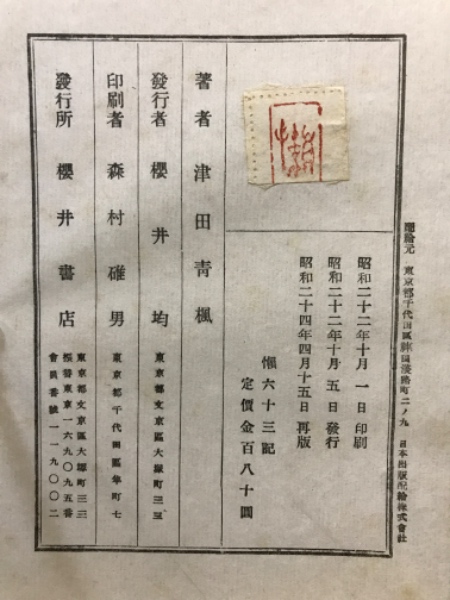 配給元 東京都千代田區神田淡路町二ノ九 日本出版配給株式會社
昭和二十二年十月一日印刷
昭和二十二年十月五日發行
昭和二十四年四月十五日再版
懶六十三記
定價金百八十圓
著者 津田青楓
發行者 櫻井均
東京都文京區大塚町三三
印刷者 森村碓男
東京都千代田區隼町七
發行所 櫻井書店
東京都文京區大塚町三三
振替東京一六九〇九五番
會員番號一一九〇〇二